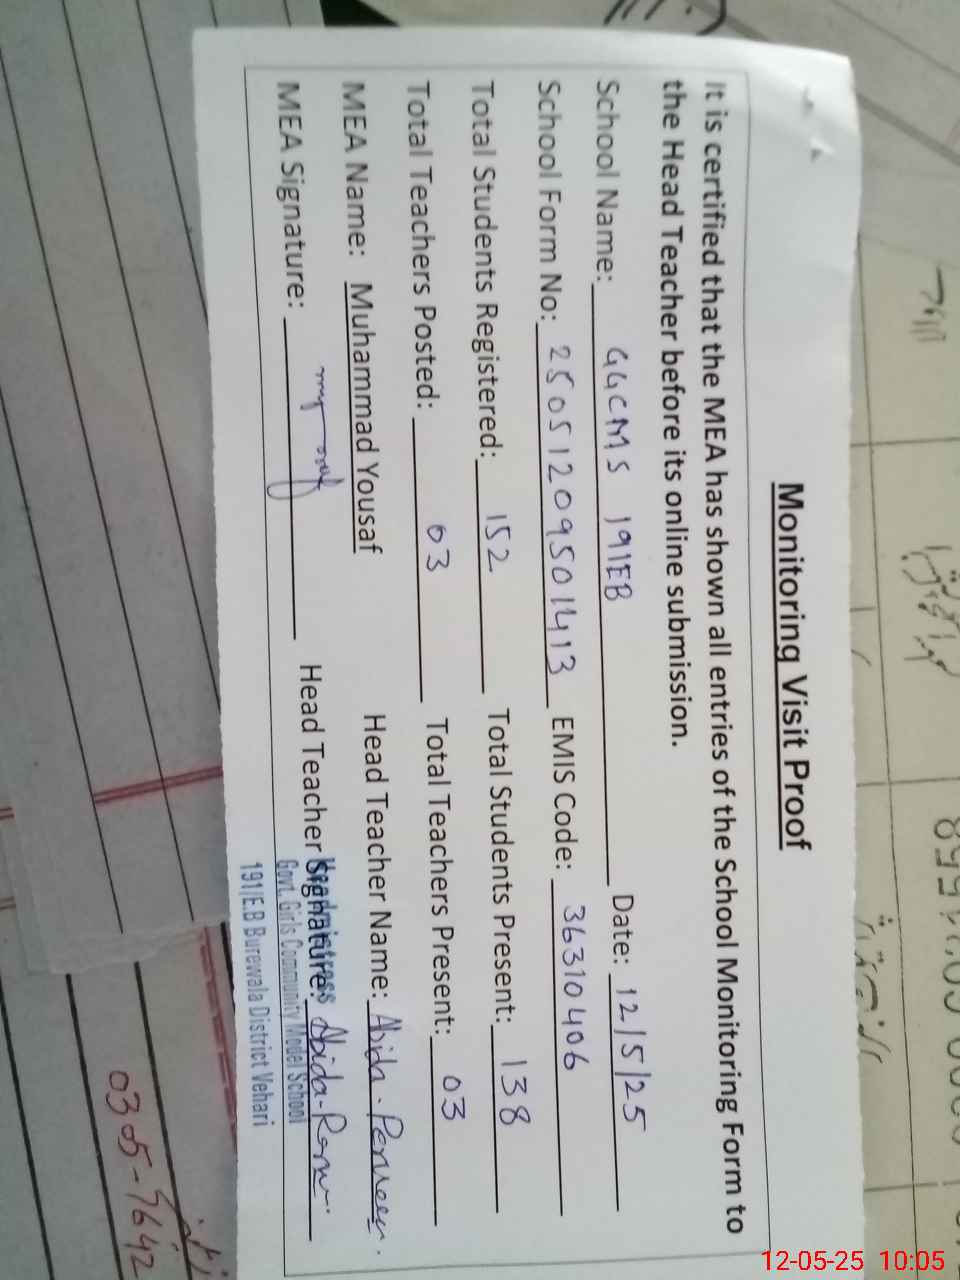 Monitoring Visit Proof
It is certified that the MEA has shown all entries of the School Monitoring Form to
the Head Teacher before its online submission.
School Name: GGCMS 191EB Date: 12/5/25
School Form No: 25051209501413 EMIS Code: 36310406
Total Students Registered: 152 Total Students Present: 138
Total Teachers Posted: 03 Total Teachers Present: 03
MEA Name: Muhammad Yousaf Head Teacher Name: Abida Parveen.
MEA Signature: Head Teacher Signature: Abida
Headmistress
Govt. Girls Community Model School
191/E.B Burewala District Vehari
0305-9642
12-05-25 10:05